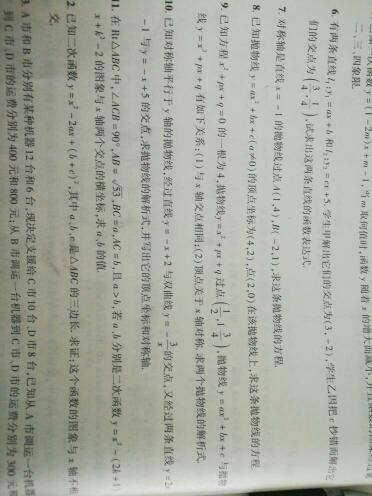 次函数 y=(1-2m)x+m-1, 当 m 取何值时, 函数 y 随着 x 的增大而减小, 并且
二、三、四象限.
6. 有两条直线 l₁:y₁=ax+b 和 l₂:y₂=cx+5, 学生甲解出它们的交点为(3,-2), 学生乙因把 c 抄错而解出它
们的交点为(3/4,1/4), 试求出这两条直线的函数表达式.
7. 对称轴是直线 x=-1 的抛物线过点 A(1,4), B(-2,1), 求这条抛物线的方程.
8. 已知抛物线 y=ax²+bx+c(a≠0)的顶点坐标为(4,2), 点(2,0)在该抛物线上, 求这条抛物线的方程.
9. 已知方程 x²+px+q=0 的一根为 4, 抛物线 y=x²+px+q 过点(1/2,1 3/4), 抛物线 y=ax²+bx+c 与抛物
线 y=x²+px+q 有如下关系:(1)与 x 轴交点相同;(2)顶点关于 x 轴对称. 求两个抛物线的解析式.
10. 已知对称轴平行于 y 轴的抛物线, 经过直线 y=-x+2 与双曲线 y=-3/x 的交点, 又经过两条直线 y=2x
-1 与 y=-x+5 的交点, 求抛物线的解析式, 并写出它的顶点坐标和对称轴.
11. 在 Rt△ABC 中, ∠ACB=90°, AB=√53, BC=a, AC=b, 且 a>b, 若 a、b 分别是二次函数 y=x²-(2k+1)
x+k²-2 的图象与 x 轴两个交点的横坐标, 求 a、b 的值.
2. 已知二次函数 y=x²-2ax+(b+c)², 其中 a、b、c 是△ABC 的三边长. 求证:这个函数的图象与 x 轴不相
交.
3. A 市和 B 市分别有某种机器 12 台和 6 台, 现决定支援给 C 市 10 台, D 市 8 台, 已知从 A 市调运一台机器
到 C 市、D 市的运费分别为 400 元和 800 元; 从 B 市调运一台机器到 C 市、D 市的运费分别为 300 元和